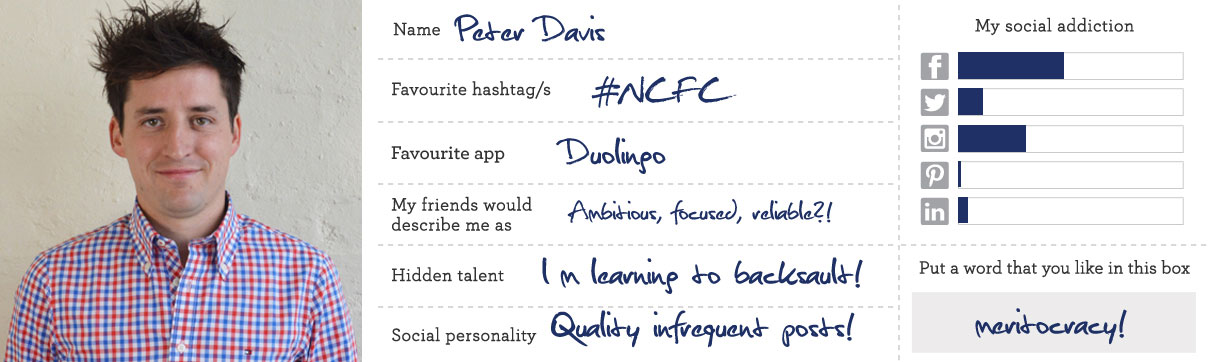 Name Peter Davis
Favourite hashtag/s #NCFC
Favourite app Duolingo
My friends would
describe me as Ambitious, focused, reliable?!
Hidden talent I m learning to backsault!
Social personality Quality infrequent posts!
My social addiction
f
in
Put a word that you like in this box
meritocracy!